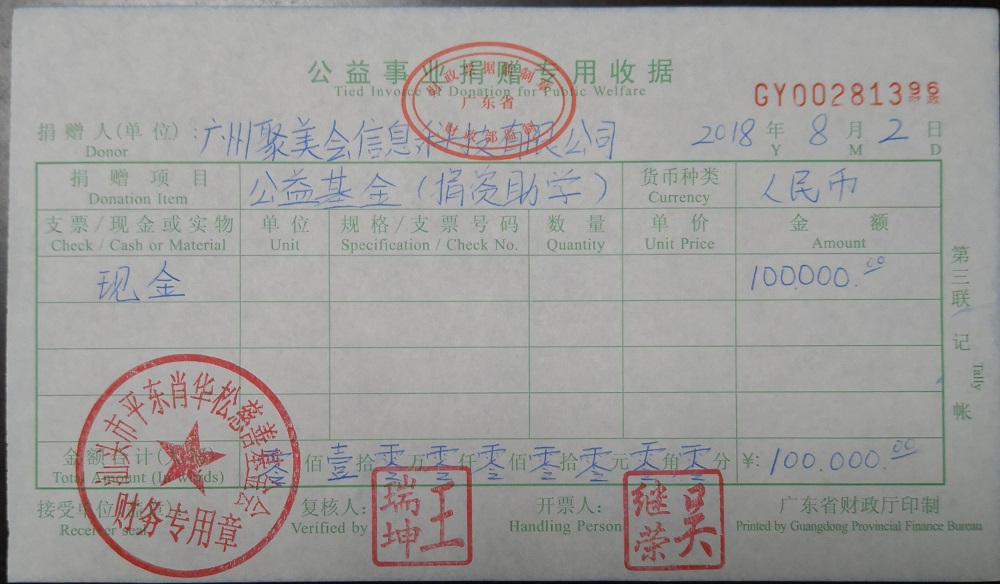 公益事业捐赠专用收据
Tied Invoice of Donation for Public Welfare
广东省
GY00281396
捐赠人(单位): 广州聚美会信息科技有限公司 2018年 8月 2日
Donor Y M D
捐赠项目 公益基金(捐资助学) 货币种类 人民币
Donation Item Currency
支票/现金或实物 单位 规格/支票号码 数量 单价 金额
Check / Cash or Material Unit Specification / Check No. Quantity Unit Price Amount
现金 100000.00
金额合计 佰壹拾零万零仟零佰零拾零元零角零分 ¥: 100.000.00
Total Amount (In words)
接受单位 复核人: 开票人: 广东省财政厅印制
Receiver seal Verified by Handling Person Printed by Guangdong Provincial Finance Bureau
市平东肖华松慈善基金会
财务专用章
王瑞坤
吴继荣
第三联 记帐
Tally